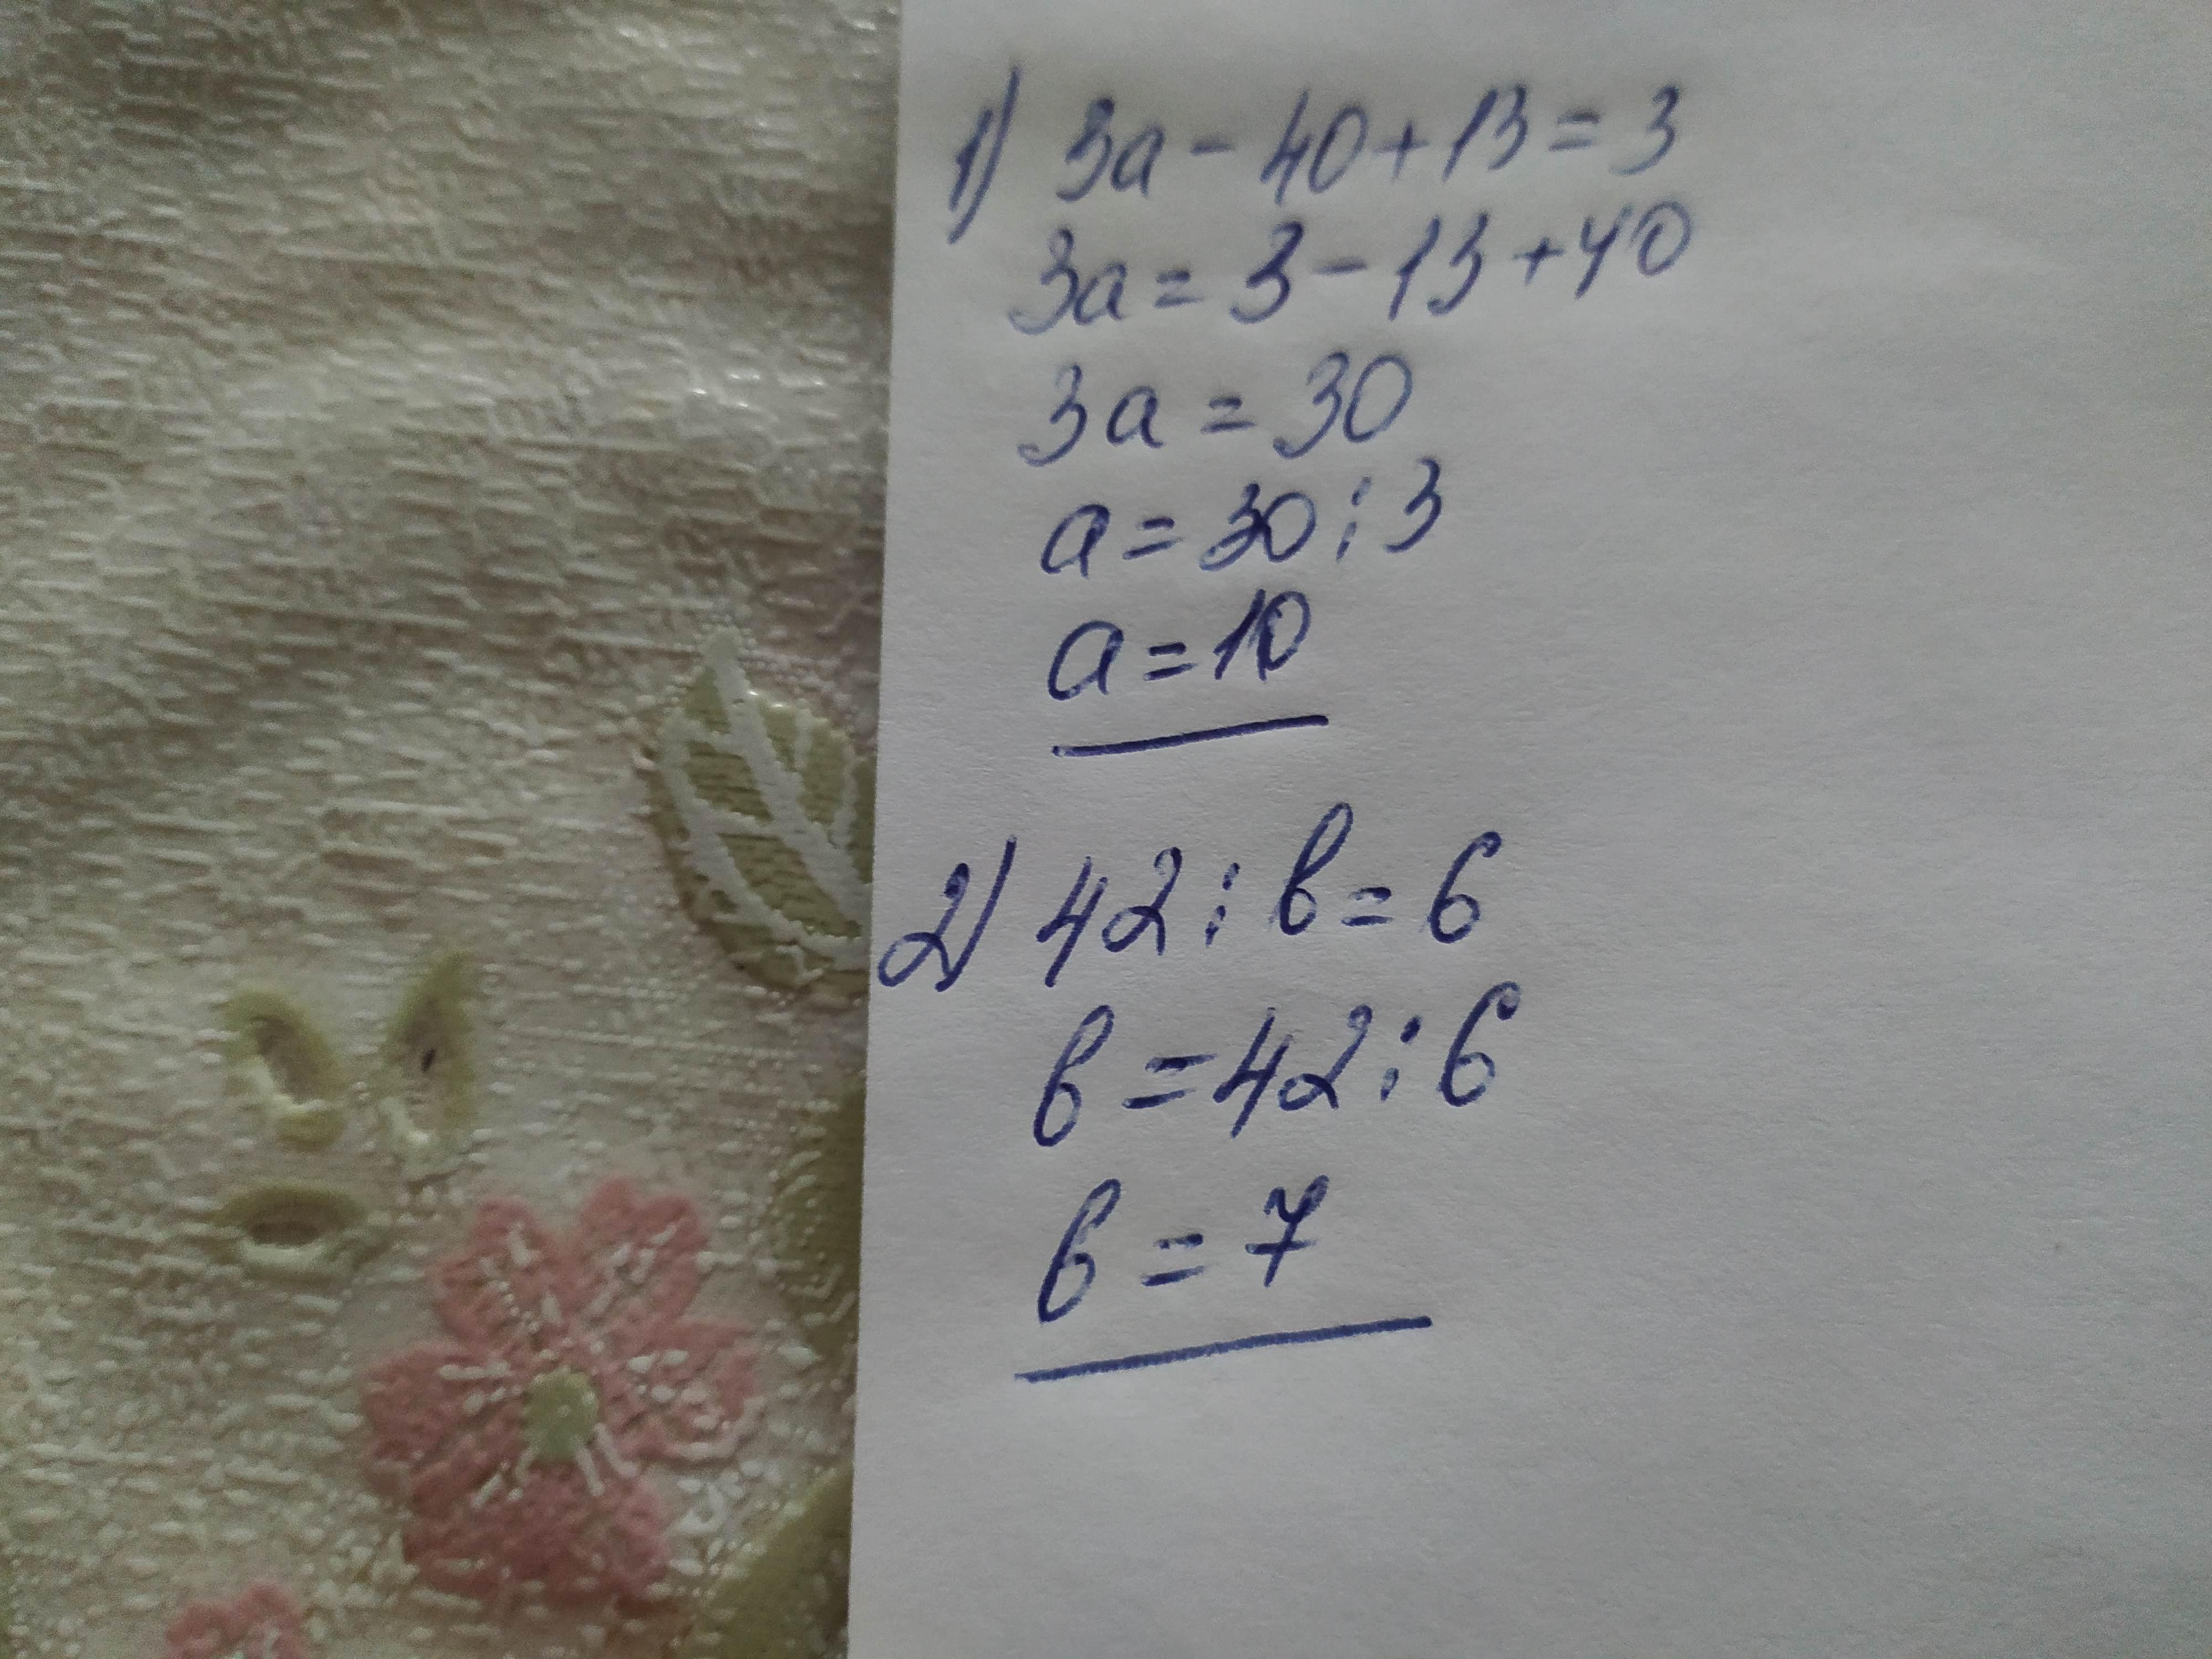 1) 3a - 40 + 13 = 3
3a = 3 - 13 + 40
3a = 30
a = 30 : 3
a = 10
2) 42 : b = 6
b = 42 : 6
b = 7